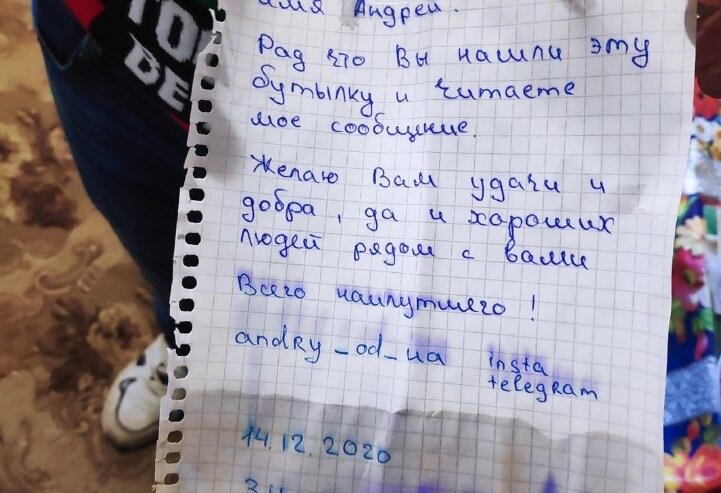 имя Андрей.
Рад что Вы нашли эту
бутылку и читаете
мое сообщение.
Желаю Вам удачи и
добра, да и хороших
людей рядом с вами
Всего наилутшего!
andRy_od_ua insta
telegram
14.12.2020